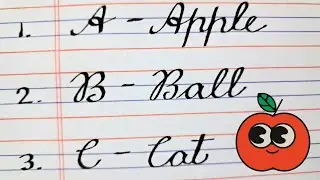 1. A - Apple
2. B - Ball
3. C - Cat